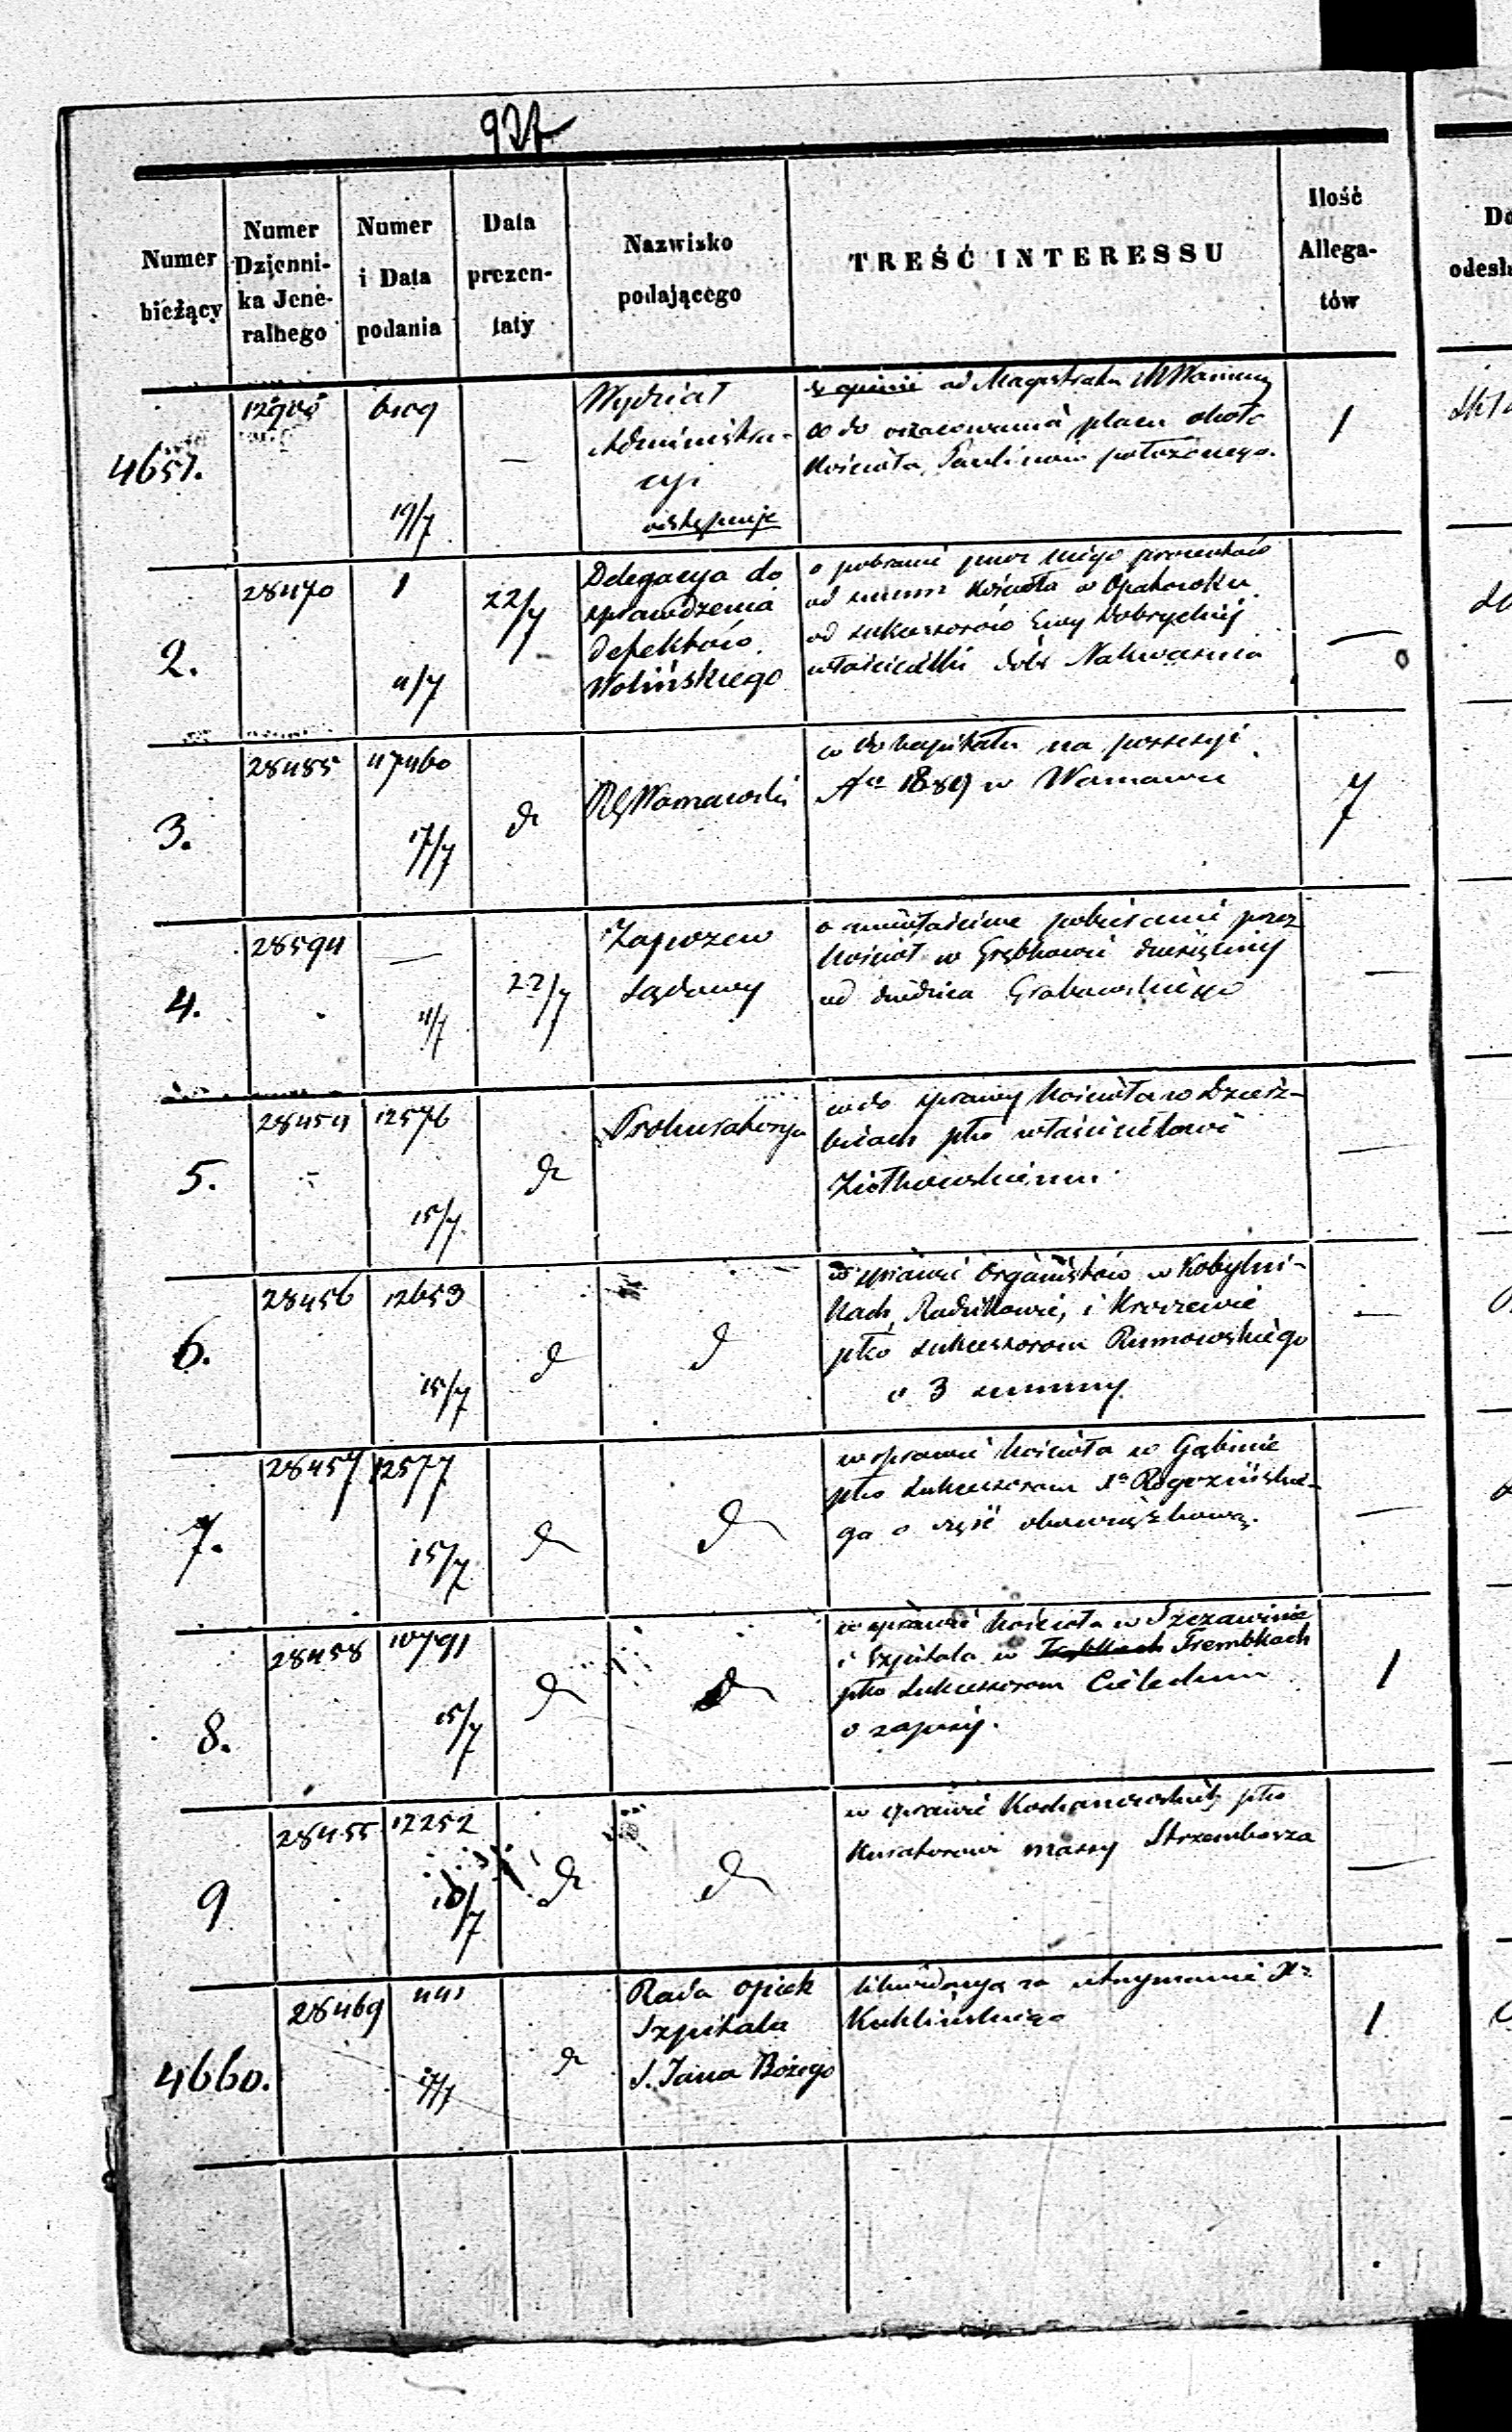 927
Numer bieżący
Numer Dzienni-
ka Jene-
ralnego
Numer
i Data
podania
Data
prezen-
taty
Nazwisko
podającego
TREŚĆ INTERESSU
Ilość
Allega-
tów
Do
odesła
4651.
6109
19/7
—
Wydział
Administra-
cyi
odstępuje
opinii od Magistratu M Warszawy
co do oszacowania placu około
Kościoła Paulinow położonego.
1
2.
28470
1
11/7
22/7
Delegacya do
sprawdzenia
defektów
Wolińskiego
o pobranie przez niego procentów
od summ Kościoła w Opatowsku
od sukcessorów Ewy Dobryckiej
właścicielki dóbr Nakwasina
—
3.
28485
47460
17/7
dt
RG Warszawski
co do kapitału na possesyi
No 1889 w Warszawie
7
4.
28594
—
11/7
22/7
Zapozew
sądowy
o niewłaściwe pobieranie przez
kościoł w Grębkowie dziesięciny
od dziedzica Grabowskiego
—
5.
28454
12576
15/7
dt
Prokuratorya
co do sprawy kościoła w Dzierz-
bicach pko właścicielowi
Ziółkowskiemu.
—
6.
28456
12653
15/7
d
d
w sprawie Organistów w Kobylni-
kach, Radzikowie, i Kroczewie
pko sukcessorom Rumowskiego
o 3 summy
—
7.
28457
12577
15/7
d
d
w sprawie kościoła w Gąbinie
pko sukcessorom Xa Rogozińskie-
go o część obowiązkową.
—
8.
28458
10791
15/7
d
d
w sprawie kościoła w Szczawinie
i Szpitala w Trębkach Trembkach
pko sukcessorom
o zapisy.
1
9
28455
12252
10/7
dt
d
w sprawie Kochanowskich pko
Kuratorowi massy Strzembosza
—
4660.
28469
441
17/7
dt
Rada Opiek
Szpitala
S. Jana Bożego
likwidacyą za utrzymanie Xa
Kuklińskiego
1